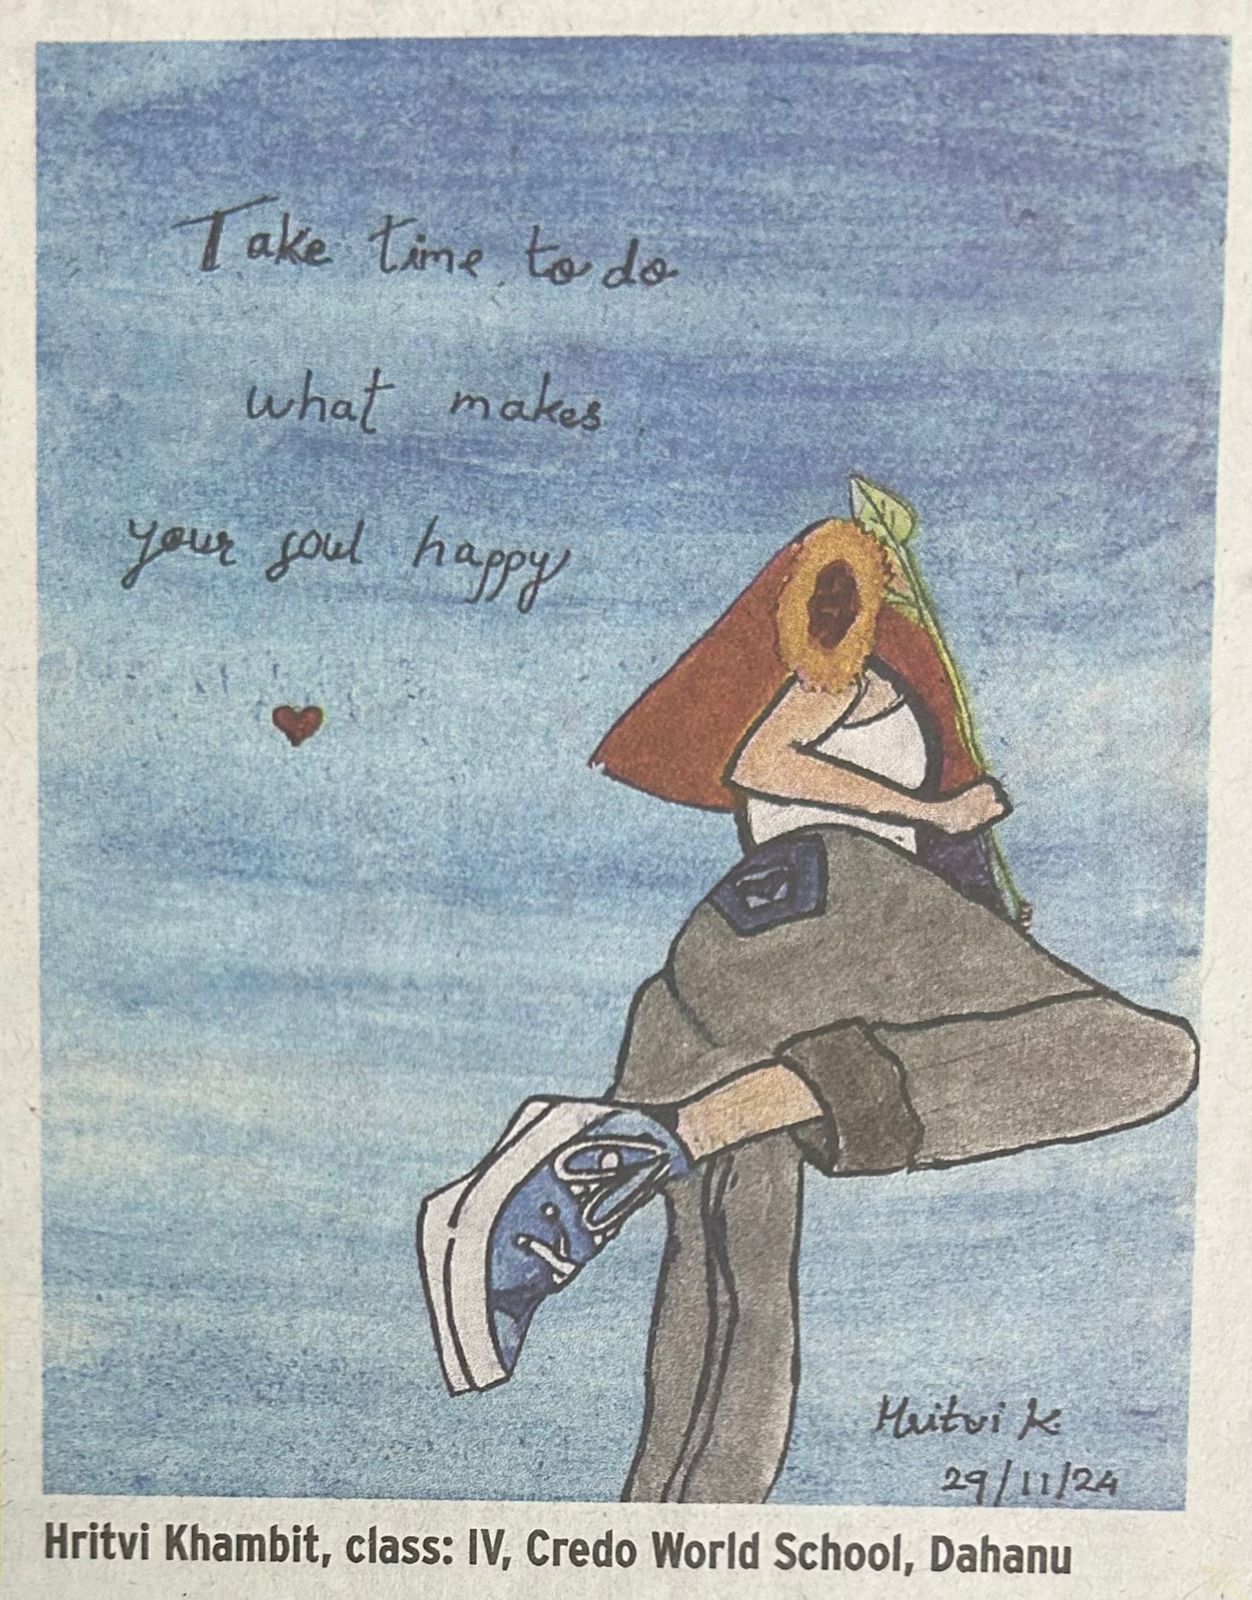 Take time to do
what makes
your soul happy
Hritvi K.
29/11/24
Hritvi Khambit, class: IV, Credo World School, Dahanu